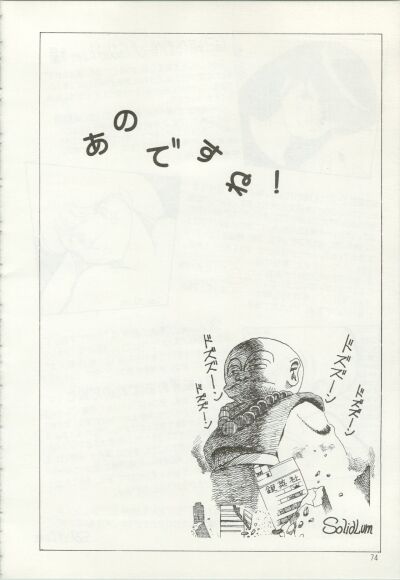 あのですね!
ドズズーン
ドズズーン
ドズズーン
ドズズーン
SolidLum
74